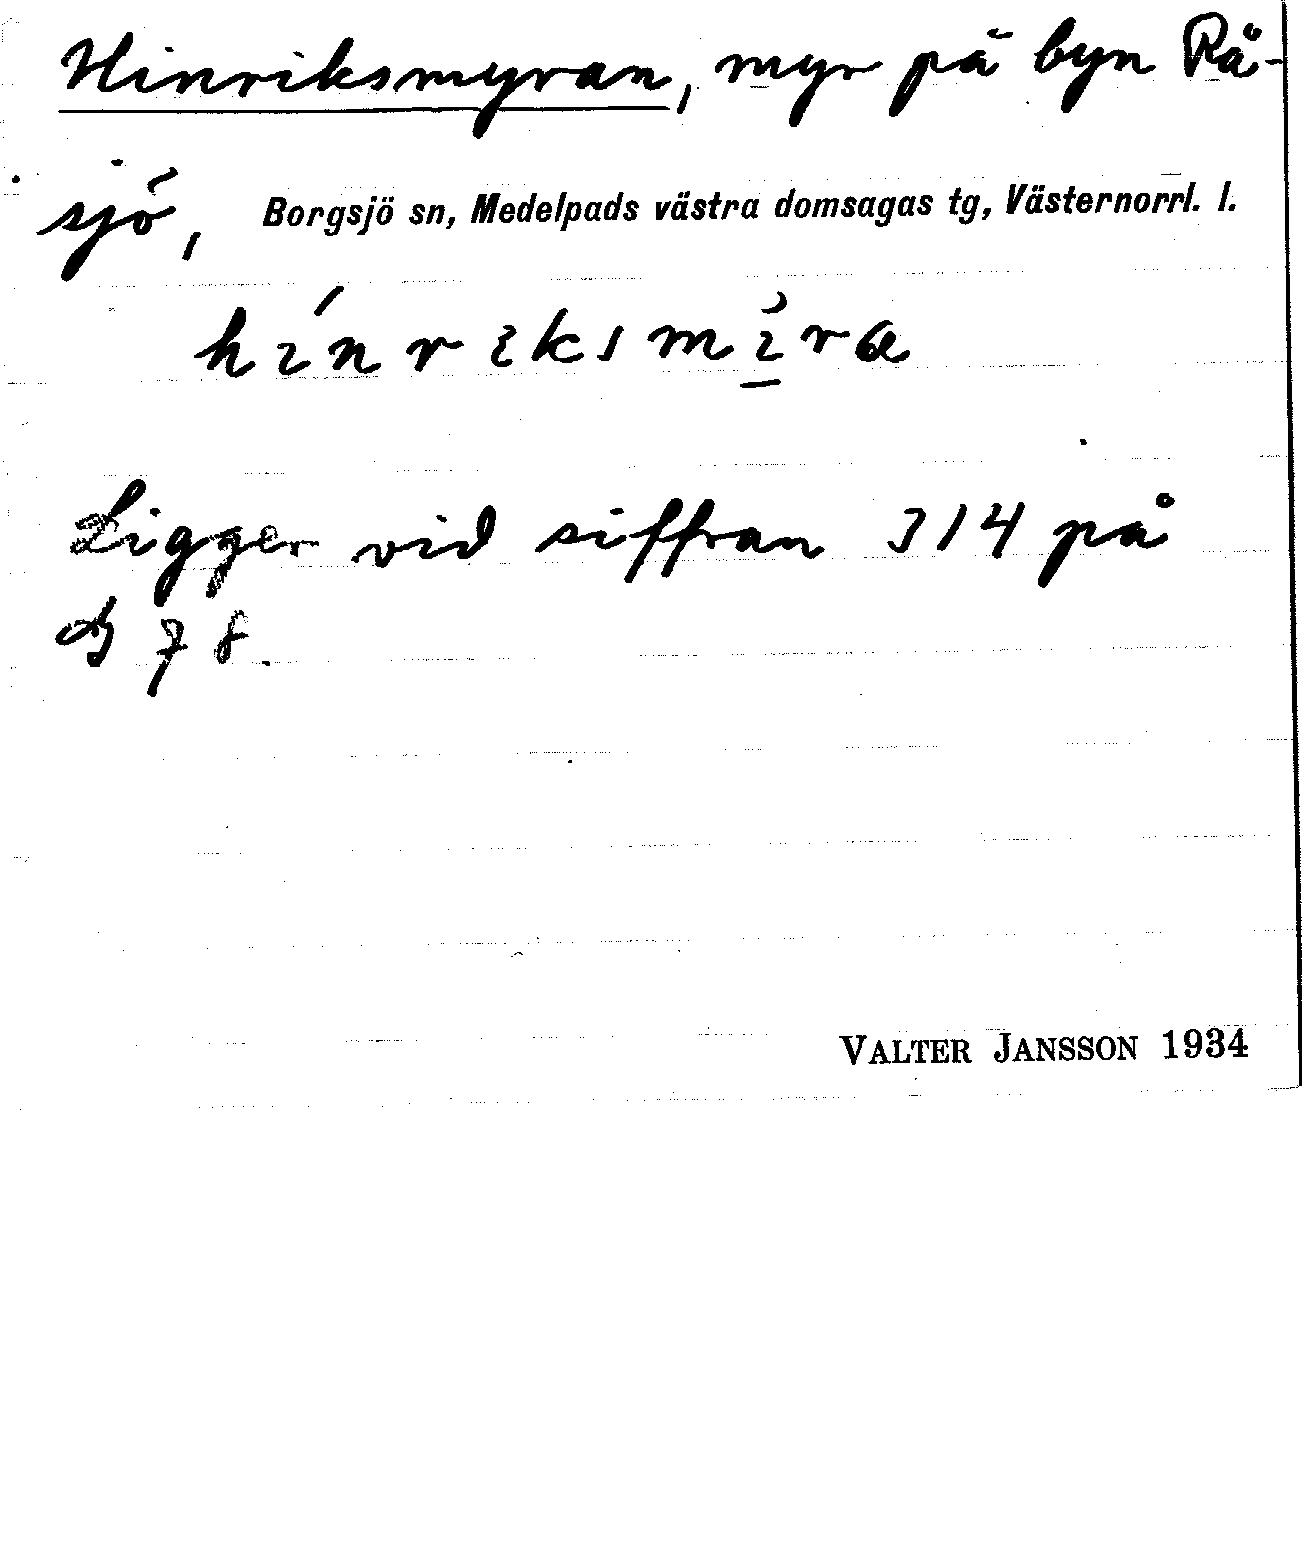 Hinriksmyran, myr på byn Rå-
sjö, Borgsjö sn, Medelpads västra domsagas tg, Västernorrl. l.
hínriksmìra
Ligger vid siffran 314 på
B 78.
VALTER JANSSON 1934